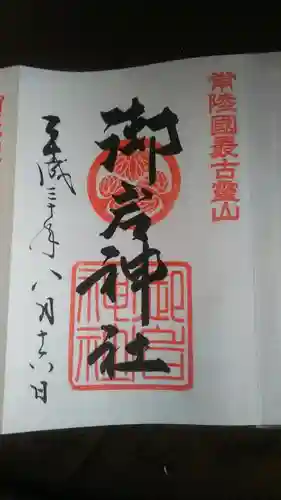 常陸國最古霊山
御岩神社
御岩神社
平成三十年八月十六日